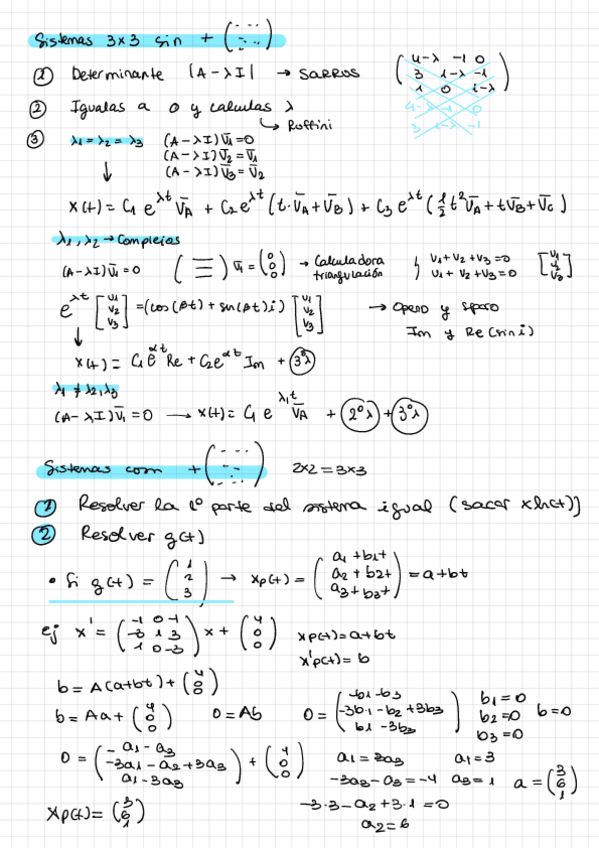 Sistemas 3x3 sin + (--- / ---)
① Determinante |A-λI| → SARROS (4-λ -1 0 / 3 1-λ -1 / 1 0 1-λ)
4-λ -1 0
3 1-λ -1
② Igualas a 0 y calculas λ
↳ Ruffini
③ λ1 = λ2 = λ3 (A-λI)V̄1=0
(A-λI)V̄2=V̄1
(A-λI)V̄3=V̄2
x(t) = C1 e^λt V̄A + C2 e^λt (t·V̄A+V̄B) + C3 e^λt (1/2 t² V̄A + tV̄B + V̄C)
λ1, λ2 → Complejos
(A-λI)V̄1=0 (≡) V̄1 = (0 / 0 / 0) → Calculadora triangulación { V1+V2+V3=0 / V1+V2+V3=0 [V1 / V2 / V3]
e^λt [V1 / V2 / V3] = (cos(βt) + sen(βt)i) [V1 / V2 / V3] → Opero y separo
Im y Re (sin i)
x(t) = C1 e^αt Re + C2 e^αt Im + 3ºλ
λ1 ≠ λ2, λ3
(A-λI)V̄1=0 → x(t) = C1 e^λ1t V̄A + 2ºλ + 3ºλ
Sistemas com + (--- / --- / ---) 2x2 = 3x3
① Resolver la 1º parte del sistema igual (sacar xh(t))
② Resolver g(t)
• Si g(t) = (1 / 2 / 3) → xp(t) = (a1+b1t / a2+b2t / a3+b3t) = a+bt
ej x' = (-1 0 -1 / -3 1 3 / 1 0 -3) x + (4 / 0 / 0) xp(t)=a+bt
x'p(t)=b
b = A(a+bt) + (4 / 0 / 0)
b = Aa + (4 / 0 / 0) 0=Ab 0 = (-b1-b3 / -3b1-b2+3b3 / b1-3b3) b1=0 b2=0 b3=0 b=0
0 = (-a1-a3 / -3a1-a2+3a3 / a1-3a3) + (4 / 0 / 0) a1=3a3 a1=3
-3a3-a3=-4 a3=1 a = (3 / 6 / 1)
xp(t) = (3 / 6 / 1) -3·3-a2+3·1=0
a2=6